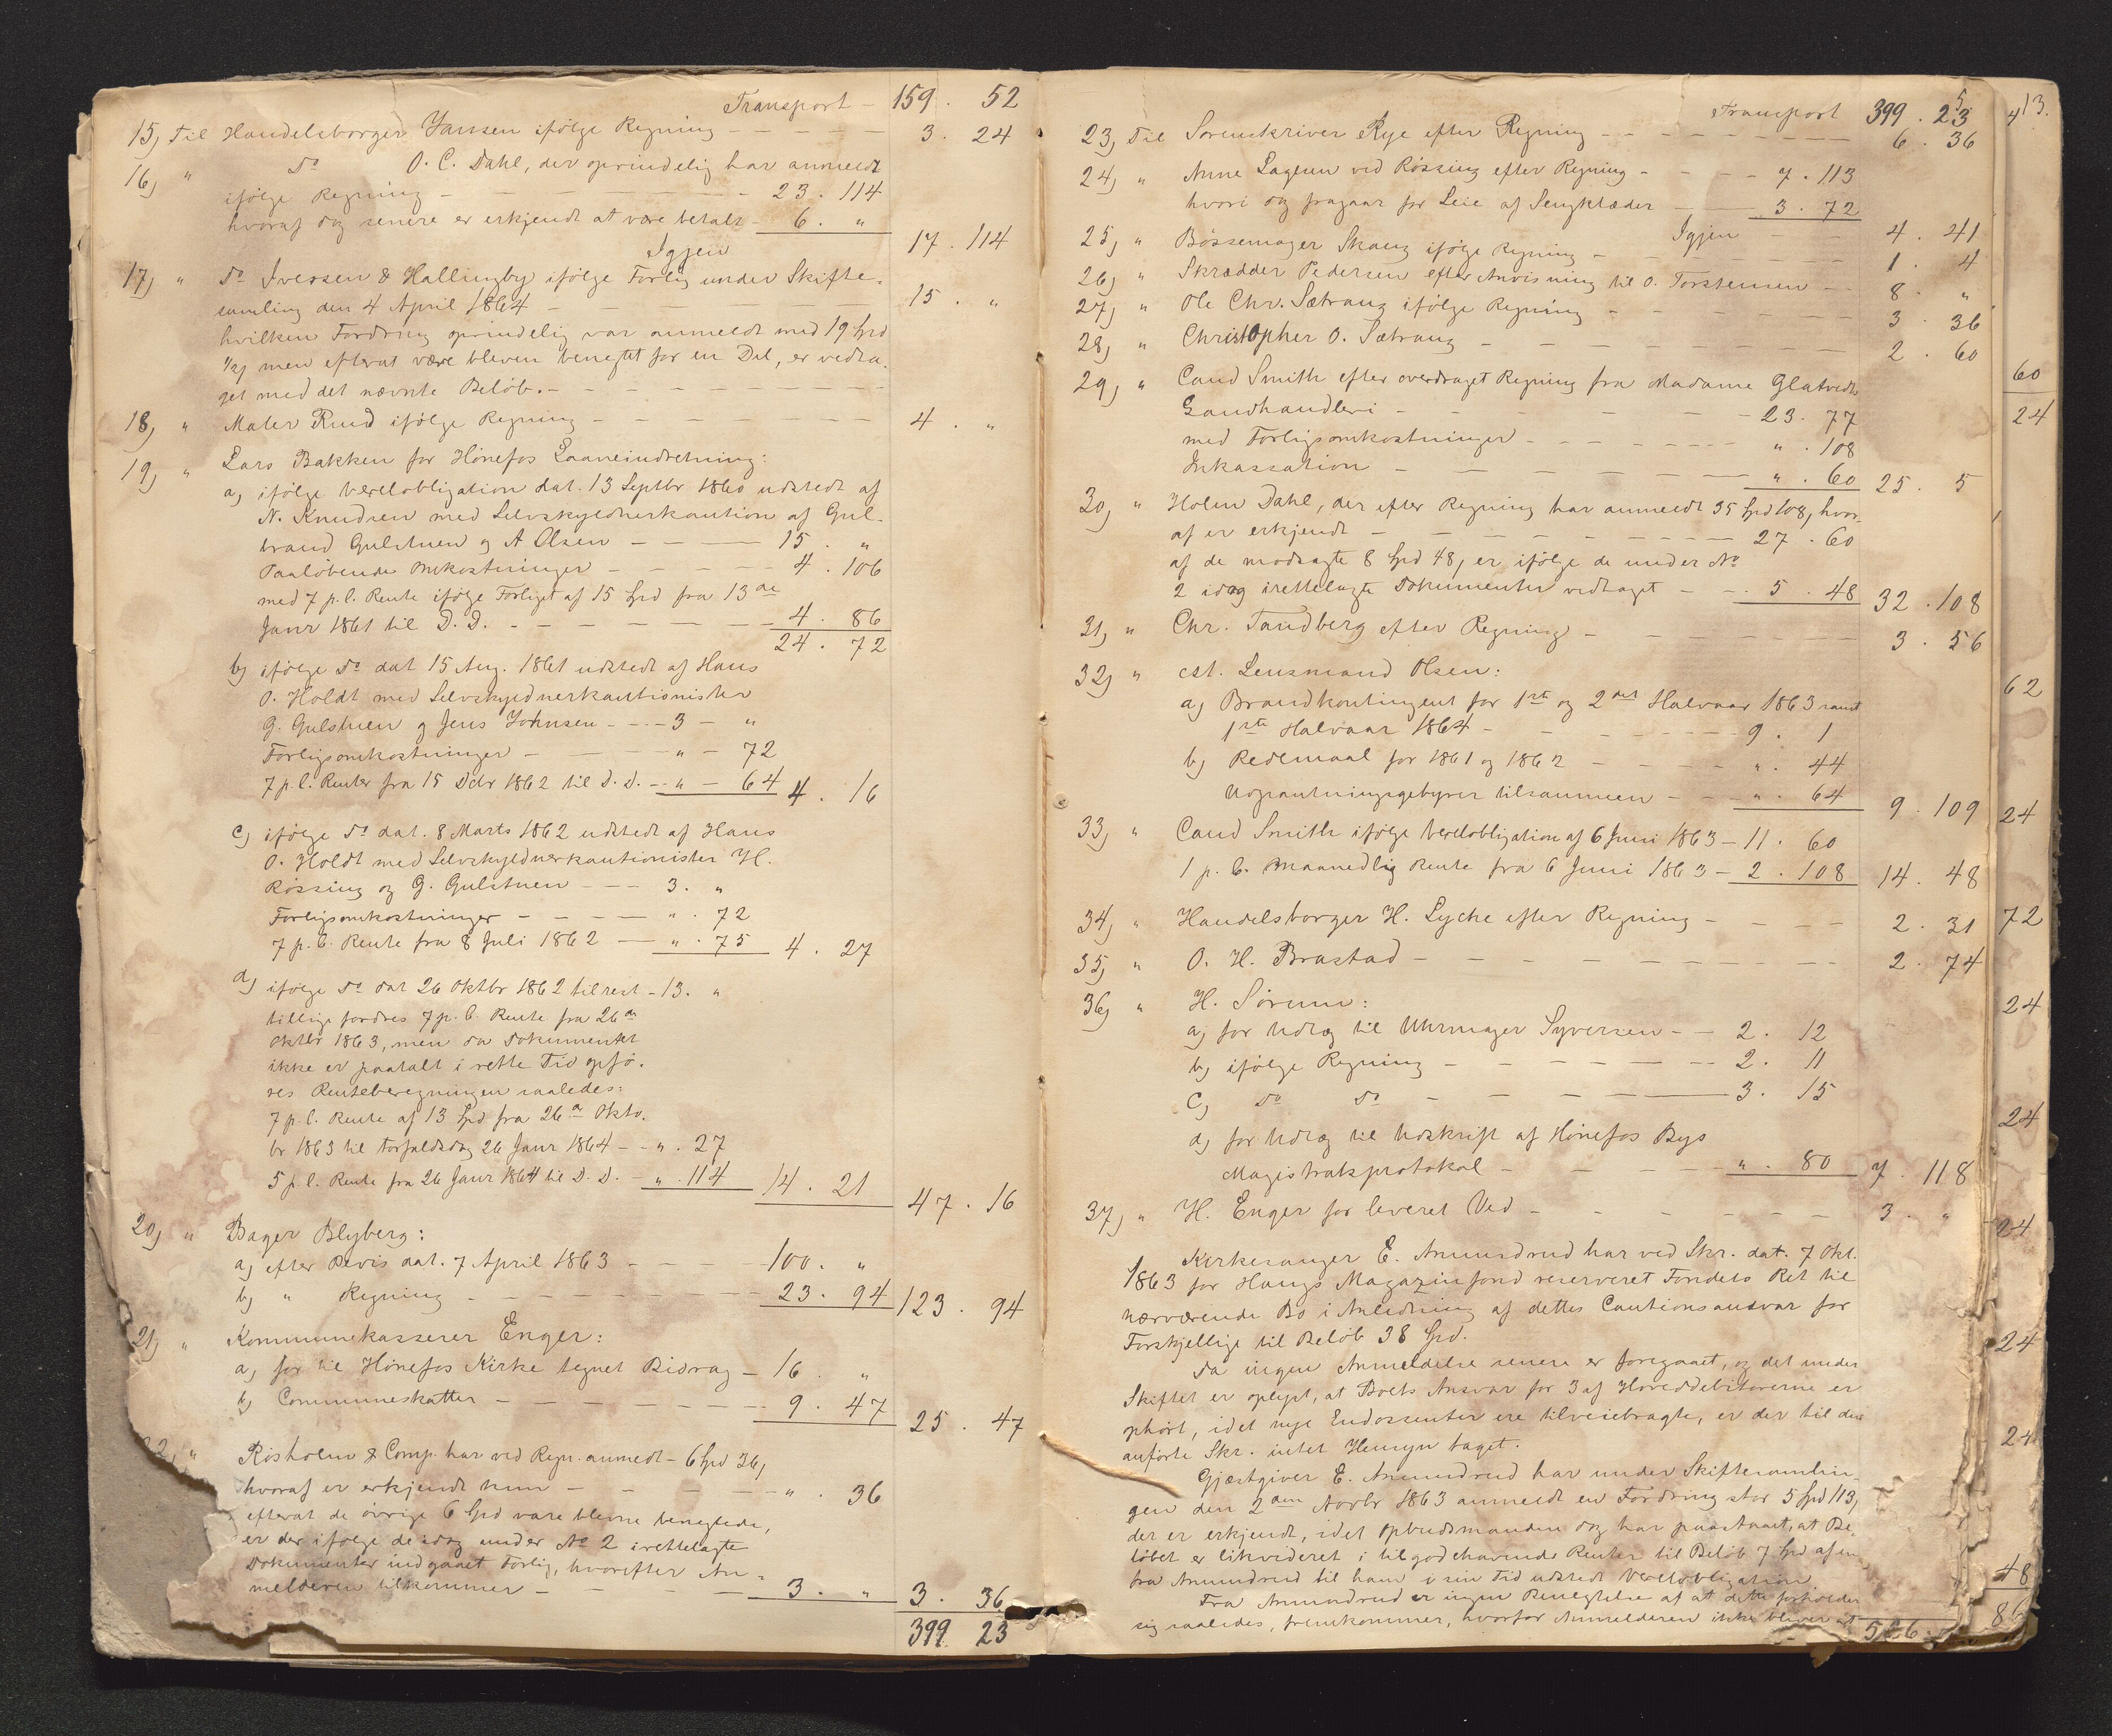 Transport – 159. 52
15) Til Handelsborger Jansen ifølge Regning – – – 3. 24
16) " do O. C. Dahl, der oprindelig har anmeldt
ifølge Regning – – – 23. 114
hvoraf dog senere er erkjendt at være betalt – 6. "
Igjen 17. 114
17) " do Iversen & Hallingby ifølge Forlig under Skifte-
samling den 4 April 1864 – – – 15. "
hvilken Fordring oprindelig var anmeldt med 19 Spd
men efterat være bleven benegtet for en Del, er vedta-
get med det nævnte Beløb. – – –
18) " Maler Ruud ifølge Regning – – – 4. "
19) " Lars Bakken for Hönefos Laaneindretning:
a) ifölge Vexelobligation dat. 13 Septbr 1860 udstedt af
N. Knudsen med Selvskyldnerkaution af Gul-
brand Gulstuen og A Olsen – – – 15. "
Paaløbende Omkostninger – – – 4. 106
med 7 p. C. Rente ifølge Forliget af 15 Spd fra 13de
Janr 1861 til D. D. – – – 4. 86
24. 72
b) ifølge do dat 15 Aug. 1861 udstedt af Hans
O. Holdt med Selvskyldnerkautionister
G. Gulstuen og Jens Johnsen – – – 3 – "
Forligsomkostninger – – – " – 72
7 p. C. Renter fra 15 Debr 1862 til D. D. – " – 64 4. 16
c) ifølge do dat. 8 Marts 1862 udstedt af Hans
O. Holdt med Selvskyldnerkautionister H.
Røssing og G. Gulstuen – – – 3. "
Forligsomkostninger – – – ". 72
7 p. C. Rente fra 8 Juli 1862 – ". 75 4. 27
d) ifølge do dat 26 Oktbr 1862 til rest – 13. "
tillige fordres 7 p. C. Rente fra 26de
Oktbr 1863, men da Dokumentet
ikke er paatalt i rette Tid opfø-
res Renteberegningen saaledes:
7 p. C. Rente af 13 Spd fra 26de Okto-
br 1863 til Forfaldsdag 26 Janr 1864 – ". 27
5 p. C. Rente fra 26 Janr 1864 til D. D. – ". 114 14. 21 47. 16
20) " Bager Blyberg:
a) efter Bevis dat. 7 April 1863 – – – 100. "
b) " Regning – – – 23. 94 123. 94
21) " Kommunekasserer Enger:
a) for til Hönefos Kirke tegnet Bidrag – 16. "
b) Communeskatter – – – 9. 47 25. 47
22) " Rösholm & Comp. har ved Regn. anmeldt – 6 Spd 36,
hvoraf er erkjendt kun – – – ". 36
efterat de øvrige 6 Spd vare blevne benegtede,
er der ifølge de idag under No 2 irettelagte
Dokumenter indgaaet Forlig, hvorefter An-
melderen tilkommer – – – 3. " 3. 36
399 23
5
Transport 399. 23
23) Til Sorenskriver Rye efter Regning – – – 6. 36
24) " Anne Lagesen ved Røssing efter Regning – – – 7. 113
hvori dog fragaar for Leie af Sengklæder – 3. 72
Igjen – 4. 41
25) " Bössemager Skaug ifølge Regning – – – 1. 4
26) " Skrædder Pedersen efter Anvisning til O. Torstensen – – 8. "
27) " Ole Chr. Sætrang ifølge Regning – – – 3. 36
28) " Christopher O. Sætrang – – – 2. 60
29) " Cand Smith efter overdraget Regning fra Madame Glatvedts
Landhandleri – – – 23. 77
med Forligsomkostninger – – – ". 108
Inkassation – – – ". 60 25. 5
30) " Holm Dahl, der efter Regning har anmeldt 35 Spd 108, hvor-
af er erkjendt – – – 27. 60
af de modsagte 8 Spd 48, er ifølge de under No
2 idag irettelagte Dokumenter vedtaget – – 5. 48 32. 108
31) " Chr. Tandberg efter Regning – – – 3. 56
32) " cst. Lensmand Olsen:
a) Brandkontingent for 1ste og 2det Halvaar 1863 samt
1ste Halvaar 1864 – – – 9. 1
b) Redemaal for 1861 og 1862 – – – ". 44
Udpantningsgebyrer tilsammen – – ". 64 9. 109
33) " Cand Smith ifølge Vexelobligation af 6 Juni 1863 – 11. 60
1 p. C. maanedlig Rente fra 6 Juni 1863 – 2. 108 14. 48
34) " Handelsborger H. Lycke efter Regning – – – 2. 31
35) " O. H. Brastad – – – 2. 74
36) " H. Sörum:
a) for Udlæg til Uhrmager Syversen – – 2. 12
b) ifølge Regning – – – 2. 11
c) do do – – – 3. 15
d) for Udlæg til Udskrift af Hönefos Bys
Magistratsprotokol – – – ". 80 7. 118
37) " H. Enger for leveret Ved – – – 3. "
Kirkesanger E. Amundrud har ved Skr. dat. 7 Okt.
1863 for Haugs Magazinfond reserveret Fondets Ret til
nærværende Bo i Anledning af dettes Cautionsansvar for
Forskjellige til Beløb 38 Spd.
Da ingen Anmeldelse senere er foregaaet, og det under
Skiftet er oplyst, at Boets Ansvar for 3 af Hoveddebitorerne er
ophört, idet nye Endossenter ere tilveiebragte, er der til den
anførte Skr. intet Hensyn taget.
Gjæstgiver E. Amundrud har under Skiftesamlin-
gen den 2den Novbr 1863 anmeldt en Fordring stor 5 Spd 113,
der er erkjendt, idet Opbudsmanden dog har paastaaet, at Be-
løbet er likvideret i tilgodehavende Renter til Beløb 7 Spd af en
fra Amundrud til ham i sin Tid udstedt Vexelobligation.
Fra Amundrud er ingen Benegtelse af at dette forholder
sig saaledes, fremkommer, hvorfor Anmelderen ikke bliver at
526.
13.
4
60
24
62
24
72
24
24
24
24
24
48
86